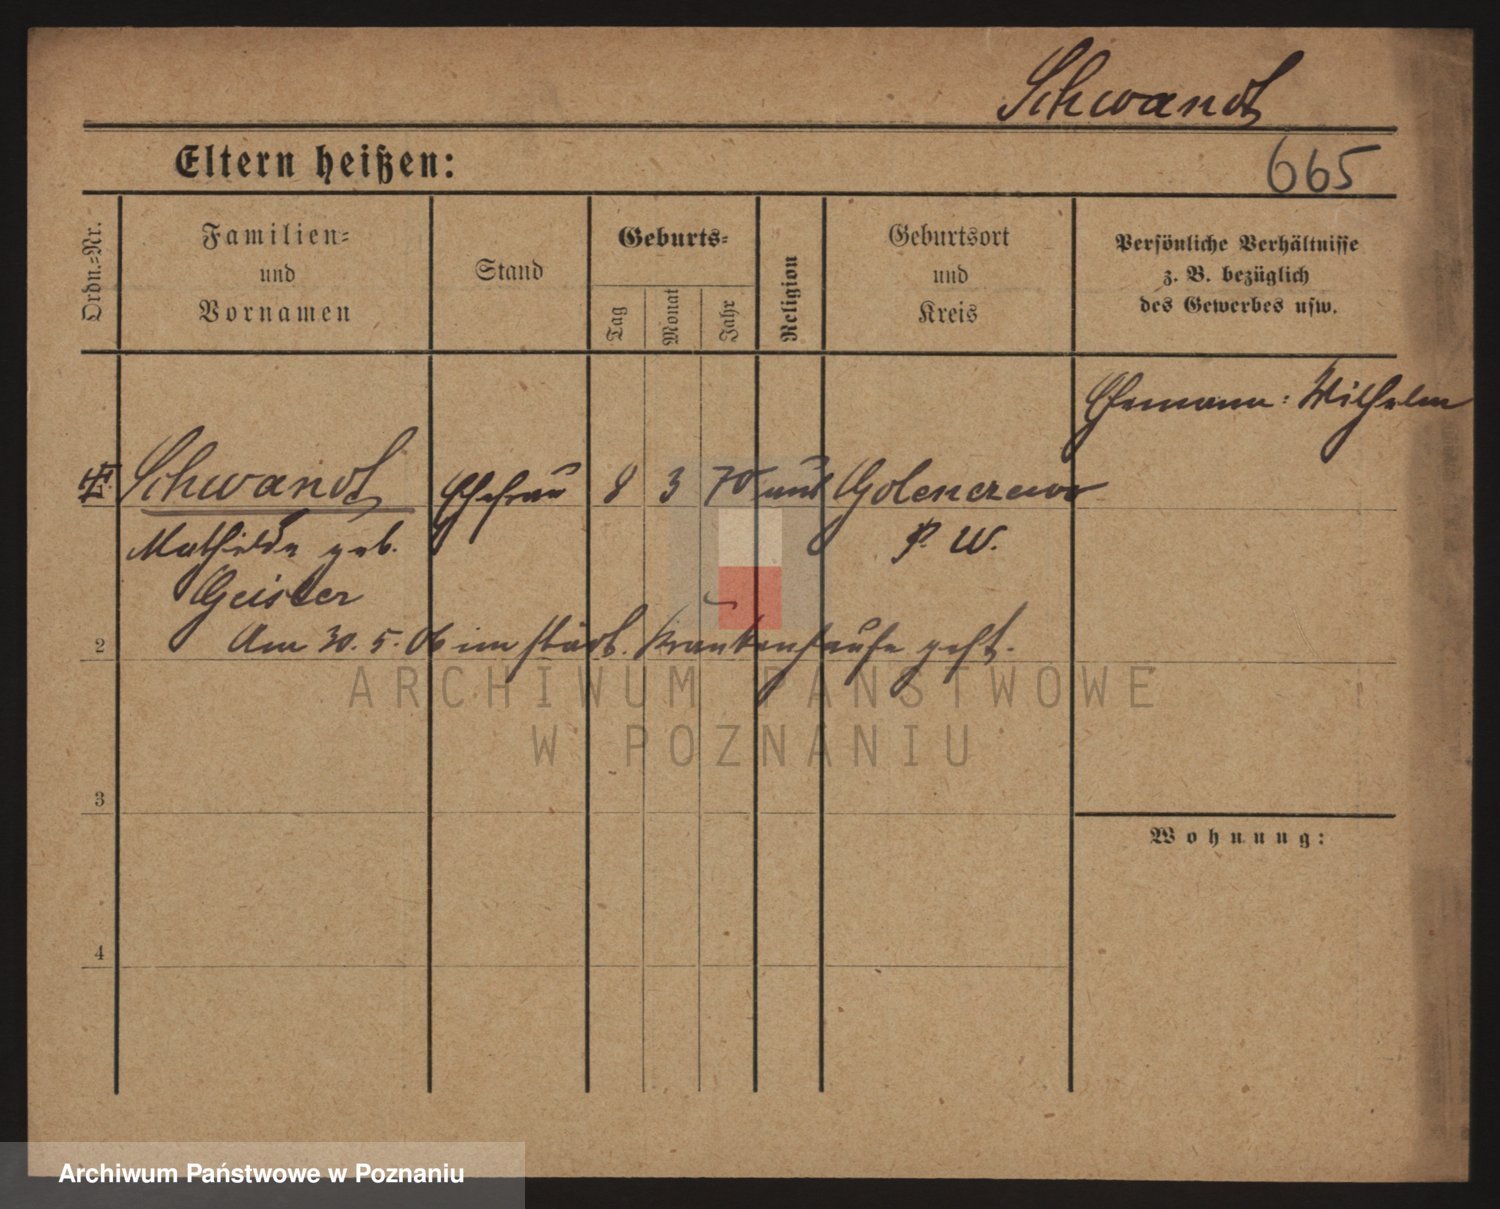 Schwandt
Eltern heißen:
665
Ordn.-Nr.
Familien-
und
Vornamen
Stand
Geburts-
Tag
Monat
Jahr
Religion
Geburtsort
und
Kreis
Persönliche Verhältnisse
z. B. bezüglich
des Gewerbes usw.
Ehemann: Wilhelm
Schwandt Ehefrau 8 3 70 Golenczewo
Mathilde geb. P. W.
Geisler
Am 30. 5. 06 im städt. Krankenhause gest.
2
3
4
Wohnung:
ARCHIWUM PAŃSTWOWE
W POZNANIU
Archiwum Państwowe w Poznaniu